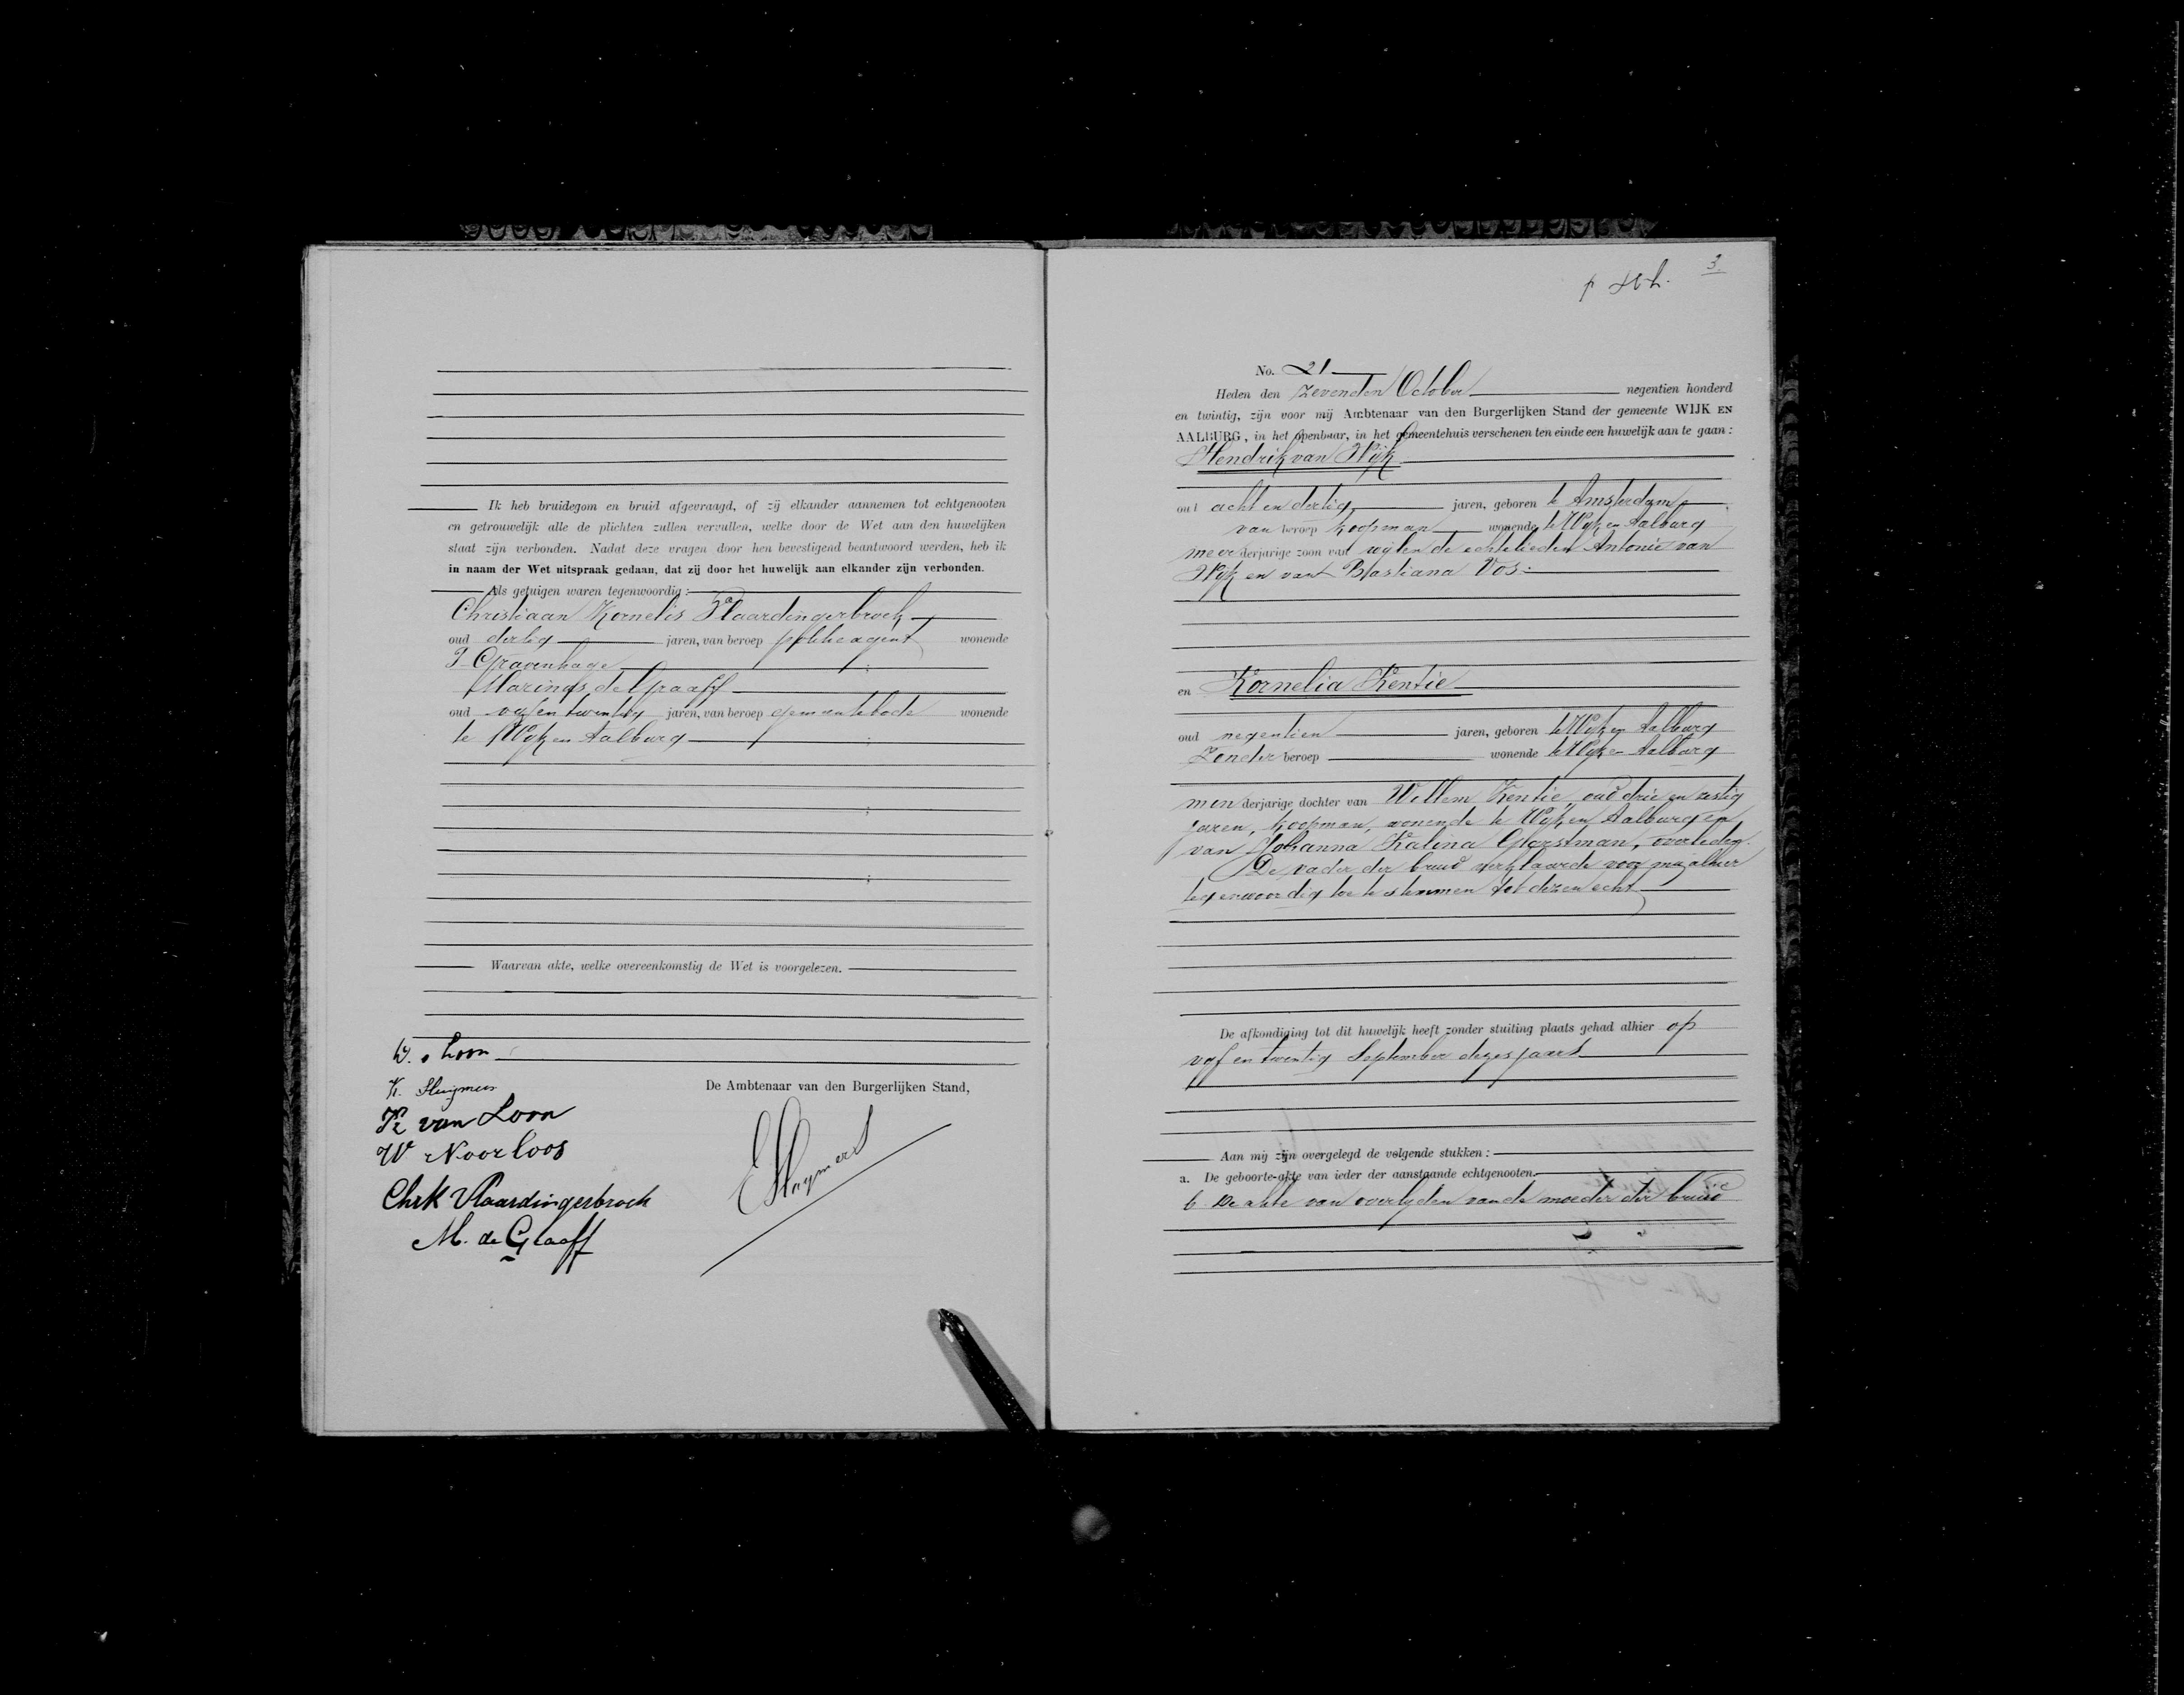 Ik heb bruidegom en bruid afgevraagd, of zij elkander aannemen tot echtgenooten
en getrouwelijk alle de plichten zullen vervullen, welke door de Wet aan den huwelijken
staat zijn verbonden. Nadat deze vragen door hen bevestigend beantwoord werden, heb ik
in naam der Wet uitspraak gedaan, dat zij door het huwelijk aan elkander zijn verbonden.
Als getuigen waren tegenwoordig:
Christiaan Kornelis Vlaardingerbroek
oud dertig jaren, van beroep politieagent wonende
's Gravenhage ;
Marinus de Graaff
oud vijfentwintig jaren, van beroep gemeentebode wonende
te Wijk en Aalburg ;
;
;
;
Waarvan akte, welke overeenkomstig de Wet is voorgelezen.
W. v Loon
K. Sluijmers
De Ambtenaar van den Burgerlijken Stand,
van Loon
W Noorloos
ESluijmers
Chr K Vlaardingerbroek
M. de Graaff
3.
No. 21
Heden den zevenden October negentien honderd
en twintig, zijn voor mij Ambtenaar van den Burgerlijken Stand der gemeente WIJK EN
AALBURG, in het openbaar, in het gemeentehuis verschenen ten einde een huwelijk aan te gaan:
Hendrik van Wijk
oud acht en dertig jaren, geboren te Amsterdam,
van beroep koopman wonende te Wijk en Aalburg
meerderjarige zoon van wijlen de echtelieden Antonie van
Wijk en van Bastiana Vos.
en Kornelia Kentie
oud negentien jaren, geboren te Wijk en Aalburg
Zonder beroep wonende te Wijk en Aalburg
minderjarige dochter van Willem Kentie, oud drie en zestig
jaren, koopman, wonende te Wijk en Aalburg en
van Johanna Kalina Glorstman, overleden.
De vader der bruid verklaarde voor mij alhier
tegenwoordig toe te stemmen tot dezen echt
De afkondiging tot dit huwelijk heeft zonder stuiting plaats gehad alhier op
vijf en twintig September dezes jaars
Aan mij zijn overgelegd de volgende stukken:
a. De geboorte-akte van ieder der aanstaande echtgenooten.
b. De akte van overlijden van de moeder der bruid